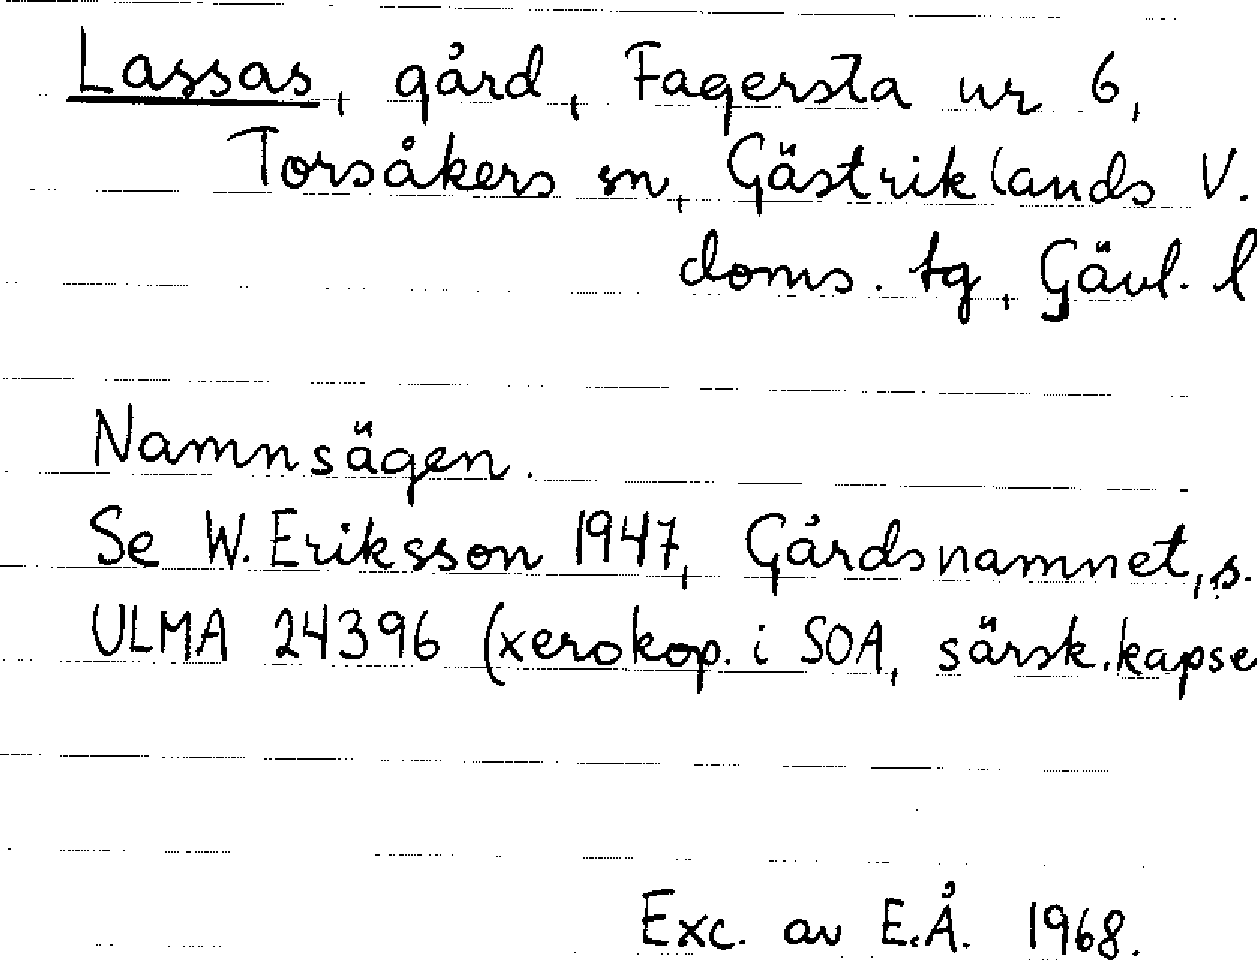 Lassas, gård, Fagersta nr 6,
Torsåkers sn, Gästriklands V.
doms. tg, Gävl. l
Namnsägen.
Se W. Eriksson 1947, Gårdsnamnet, s.
ULMA 24396 (xerokop. i SOA, särsk. kapse
Exc. av E.Å. 1968.